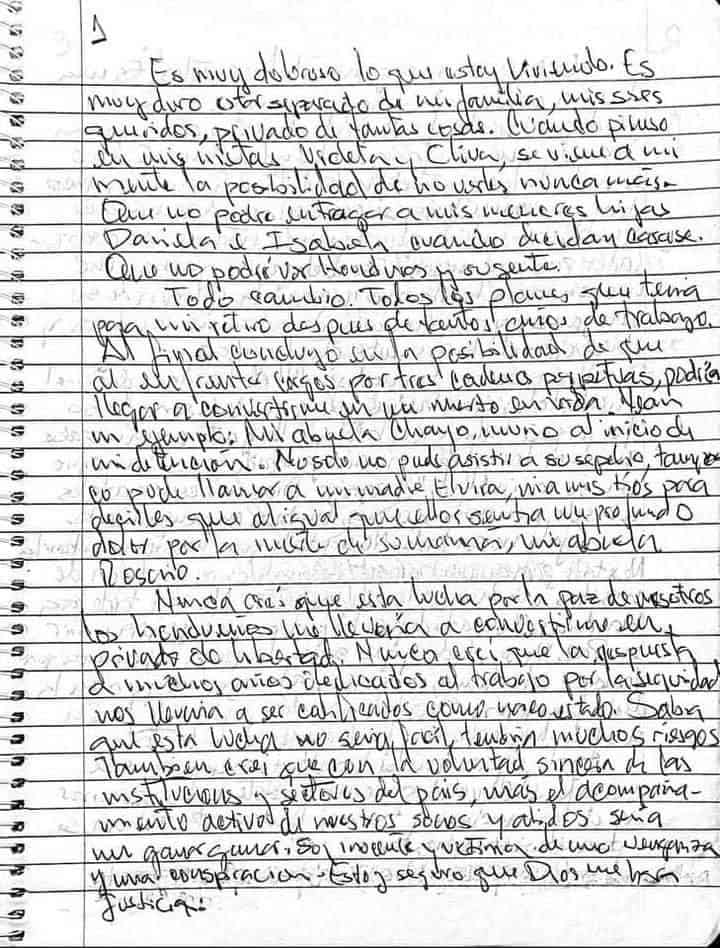 1
Es muy doloroso lo que estoy viviendo. Es
muy duro estar separado de mi familia, mis seres
queridos, privado de tantas cosas. Cuando pienso
en mis nietas Violeta y Oliva, se viene a mi
mente la posibilidad de no verles nunca más.
Que no podré entregar a mis menores hijas
Daniela e Isabela cuando decidan casarse.
Que no podré ver Honduras y su gente.
Todo cambio. Todos los planes que tenia
para mi retiro despues de tantos años de trabajo.
Al final concluyo en la posibilidad de que
al enfrentar cargos por tres cadenas perpetuas, podría
llegar a convertirme en un muerto en vida. Vean
un ejemplo: Mi abuela Chayo, murio al inicio de
mi detención. No solo no pude asistir a su sepelio, tampo
co pude llamar a mi madre Elvira, ni a mis tíos para
decirles que al igual que ellos sentia un profundo
dolor por la muerte de su mamá, mi abuela
Rosario.
Nunca creí que esta lucha por la paz de nosotros
los hondureños me llevaría a convertirme en
privado de libertad. Nunca creí que la respuesta
a muchos años dedicados al trabajo por la seguridad
nos llevaria a ser calificados como narco estado. Sabia
que esta lucha no seria facil, tendria muchos riesgos
Tambien crei que con la voluntad sincera de las
instituciones y sectores del país, más el acompaña-
miento activo de nuestros socios y aliados seria
un ganar ganar. Soy inocente y victima de una venganza
y una conspiracion. Estoy seguro que Dios me hara
justicia.